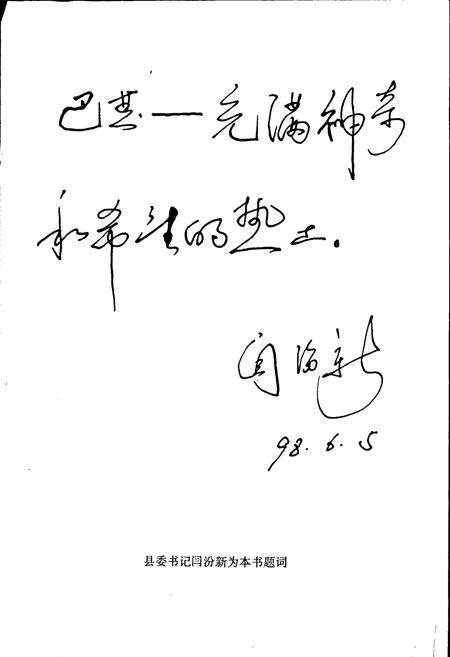 巴楚—充满神奇
和希望的热土.
闫汾新
98.6.5
县委书记闫汾新为本书题词